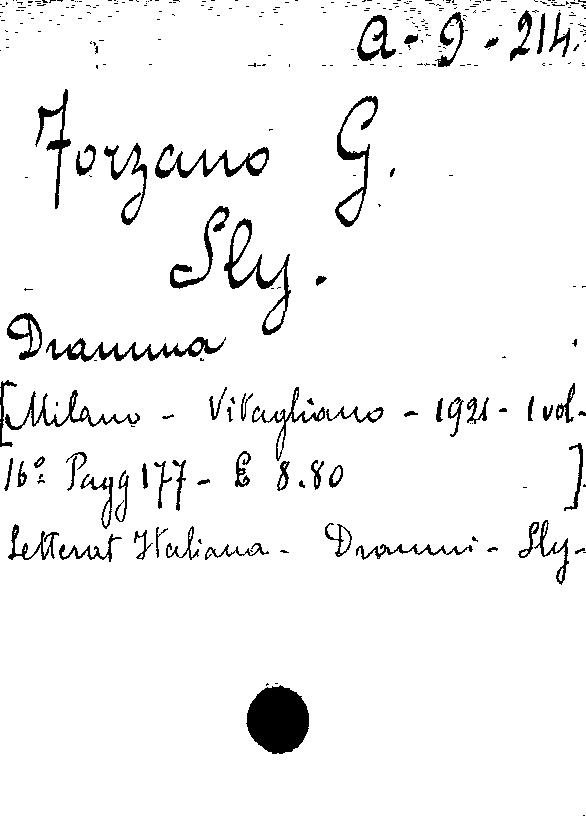 A-9-214.
Forzano G.
Sly.
Dramma
[Milano - Vitagliano - 1921 - 1 vol-
16º Pagg 177 - £ 8.80 ]
Letterat Italiana - Drammi - Sly-